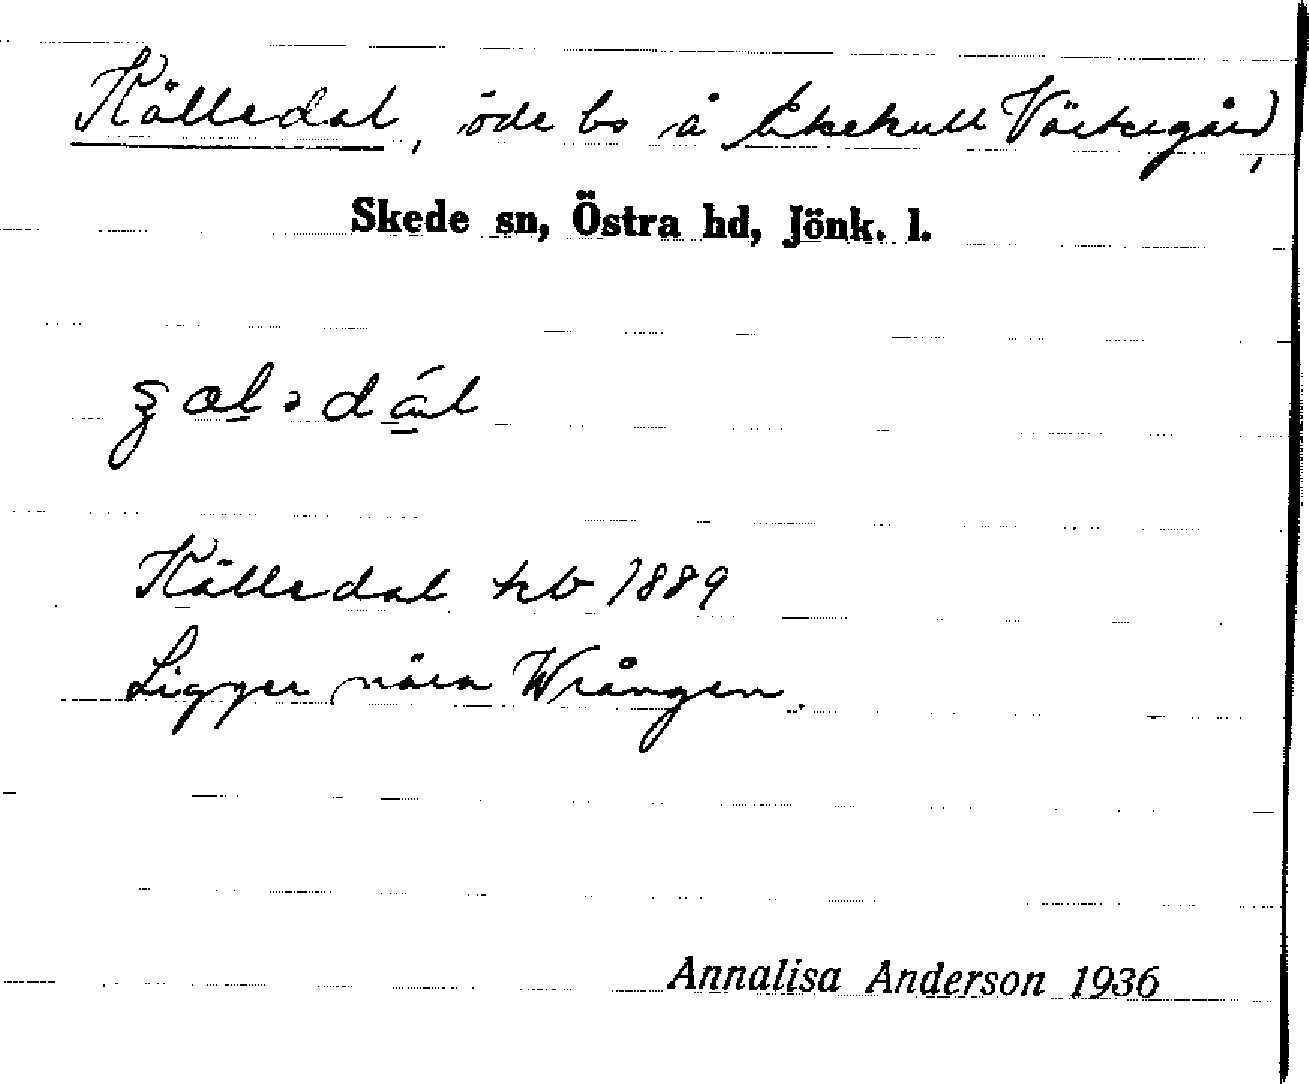 Källedal, öde bo å Ekekull Västergård,
Skede sn, Östra hd, Jönk. l.
Källedal kb 1889
Ligger nära Wrången.
Annalisa Anderson 1936